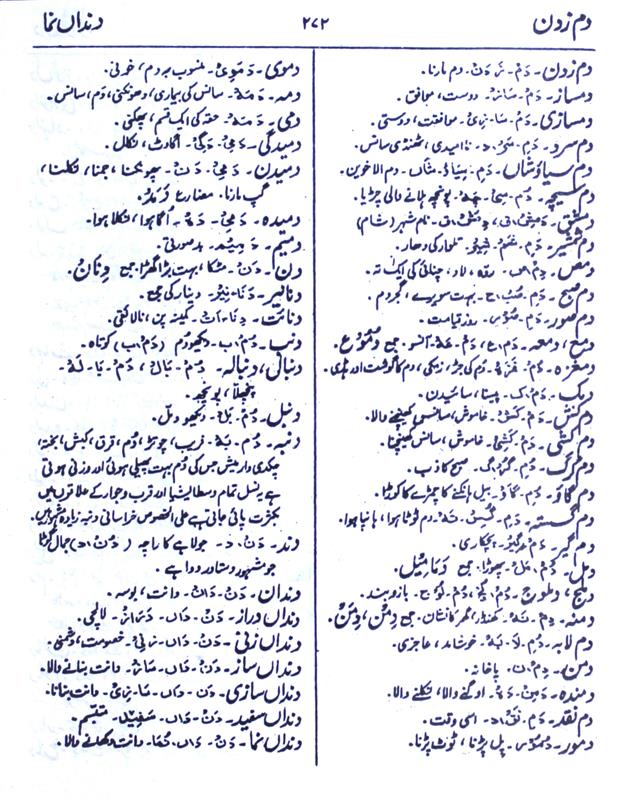 دم زدن ۲۷۲ دنداں نما
دم زدن۔ دَمْ۔ زَ۔ دَنْ۔ دم مارنا۔
دمساز۔ دَمْ۔ سَازْ۔ دوست، موافق۔
دمسازی۔ دَمْ۔ سَا۔ زِیْ۔ موافقت، دوستی۔
دم سرد۔ دَمِ۔ سَرْ۔ د۔ ناامیدی، ٹھنڈی سانس۔
دم سیاؤشاں۔ دَمِ۔ سِیَاؤ۔ شَاں۔ دم الاخوین۔
دم سیچہ۔ دُمْ۔ سِیْ۔ چَہْ۔ پونچھ ہلانے والی چڑیا۔
دمشق۔ دَمِشْ۔ ق، دِمِشْ۔ ق۔ نام شہر (شام)
دم شمشیر۔ دَمِ۔ شَمْ۔ شِیْرْ۔ تلوار کی دھار۔
دمص۔ دِمْ۔ ص۔ ردّہ، لاد، چنائی کی ایک تہ۔
دم صبح۔ دَمِ۔ صُبْ۔ ح۔ بہت سویرے، فجر دم۔
دم صور۔ دَمِ۔ صُوْرْ۔ روز قیامت۔
دمع، دمعہ۔ دَمْ۔ ع، دَمْ۔ عَہْ۔ آنسو۔ جمع دُمُوْع۔
دمغزہ۔ دُمْ۔ غَزَہْ۔ دُم کی جڑ، زمکی، دم کا گوشت اور ہڈی۔
دمک۔ دَمْ۔ ک۔ پیسنا، سائیدن۔
دم کش۔ دَمْ۔ کَشْ۔ خاموش، سانس کھینچنے والا۔
دم کشی۔ دَمْ۔ کَشِیْ۔ خاموش، سانس کھینچنا۔
دم گرگ۔ دُمِ۔ گُرْ۔ گ۔ صبح کاذب۔
دم گاؤ۔ دُمِ۔ گَاؤ۔ بیل ہانکنے کا چمڑے کا کوڑا۔
دم گسستہ۔ دَمِ۔ گُسِسْ۔ تَہْ۔ دم ٹوٹا ہوا، ہانپا ہوا۔
دم گیر۔ دَمْ۔ گِیْرْ۔ پچکاری۔
دمل۔ دُمْ۔ مَلْ۔ پھوڑا۔ جمع دَمَامِیْل۔
دملج، دملوج۔ دُمْ۔ لُجْ، دُمْ۔ لُوْج۔ بازو بند۔
دمنہ۔ دِمْ۔ نَہْ۔ کھنڈر، گھر کا نشان۔ جمع دِمْن، دِمَنْ۔
دم لابہ۔ دُمِ۔ لَا۔ بَہْ۔ خوشامد، عاجزی۔
دمن۔ دِمْ۔ ن۔ پاخانہ۔
دمندہ۔ دَمِنْ۔ دَہْ۔ اوگنے والا، نکلنے والا۔
دم نقد۔ دَمِ۔ نَقْ۔ د۔ اسی وقت۔
دمور۔ دُمُوْرْ۔ پل پڑنا، ٹوٹ پڑنا۔
دموی۔ دَمَوِیْ۔ منسوب بہ دم، خونی۔
دمہ۔ دَمَہْ۔ سانس کی بیماری، دھونکنی، دَم، سانس۔
دمی۔ دَمِیْ۔ حقہ کی ایک قسم، پچکی۔
دمیدگی۔ دَمِیْ۔ دَگِیْ۔ اگاوٹ، نکلل۔
دمیدن۔ دَمِیْ۔ دَنْ۔ پھونکنا، جمنا، نکلنا،
گپ مارنا۔ مضارع دَمَدْ۔
دمیدہ۔ دَمِیْ۔ دَہْ۔ اُگا ہوا، نکلا ہوا۔
دمیم۔ دَمِیْمْ۔ بدصورتی۔
دن۔ دَنْ۔ مٹکا، بہت بڑا گھڑا۔ جمع دِنَانْ۔
دنانیر۔ دَنَا۔ نِیْرْ۔ دینار کی جمع۔
دنائت۔ دِنَا۔ ءَتْ۔ کمینہ پن، نالائقی۔
دنب۔ دُمْ۔ ب۔ دیکھو دُم (دَمْ۔ ب) کوتاہ۔
دنبال، دنبالہ۔ دُمْ۔ بَالْ، دُمْ۔ بَا۔ لَہْ۔
پچھلّا، پونچھ۔
دنبل۔ دُمْ۔ بَلْ۔ دیکھو دمل۔
دنبہ۔ دُمْ۔ بَہْ۔ فریب، چوتڑ، دُم، قرق، کبش، بختہ،
چکری دار میش جس کی دُم بہت پھیلی ہوئی اور وزنی ہوتی
ہے یہ نسل تمام وسط ایشیا اور قرب و جوار کے علاقوں میں
بکثرت پائی جاتی ہے علی الخصوص خراسانی دنبہ زیادہ مشہور ہیں۔
دند۔ دَنْ۔ د۔ جولاہے کا راچہ (دُنْ۔ د) جمال گوٹا
جو مشہور دستاور دوا ہے۔
دندان۔ دَنْ۔ دَانْ۔ دانت، بوسہ۔
دنداں دراز۔ دَنْ۔ دَاں۔ دَرَازْ۔ لالچی۔
دنداں زنی۔ دَنْ۔ دَاں۔ زَنِیْ۔ خصومت، دشمنی۔
دنداں ساز۔ دَنْ۔ دَاں۔ سَازْ۔ دانت بنانے والا۔
دنداں سازی۔ دَنْ۔ دَاں۔ سَا۔ زِیْ۔ دانت بنانا۔
دنداں سفید۔ دَنْ۔ دَاں۔ سَفِیْدْ۔ متبسّم۔
دنداں نما۔ دَنْ۔ دَاں۔ نُمَا۔ دانت دکھلانے والا۔